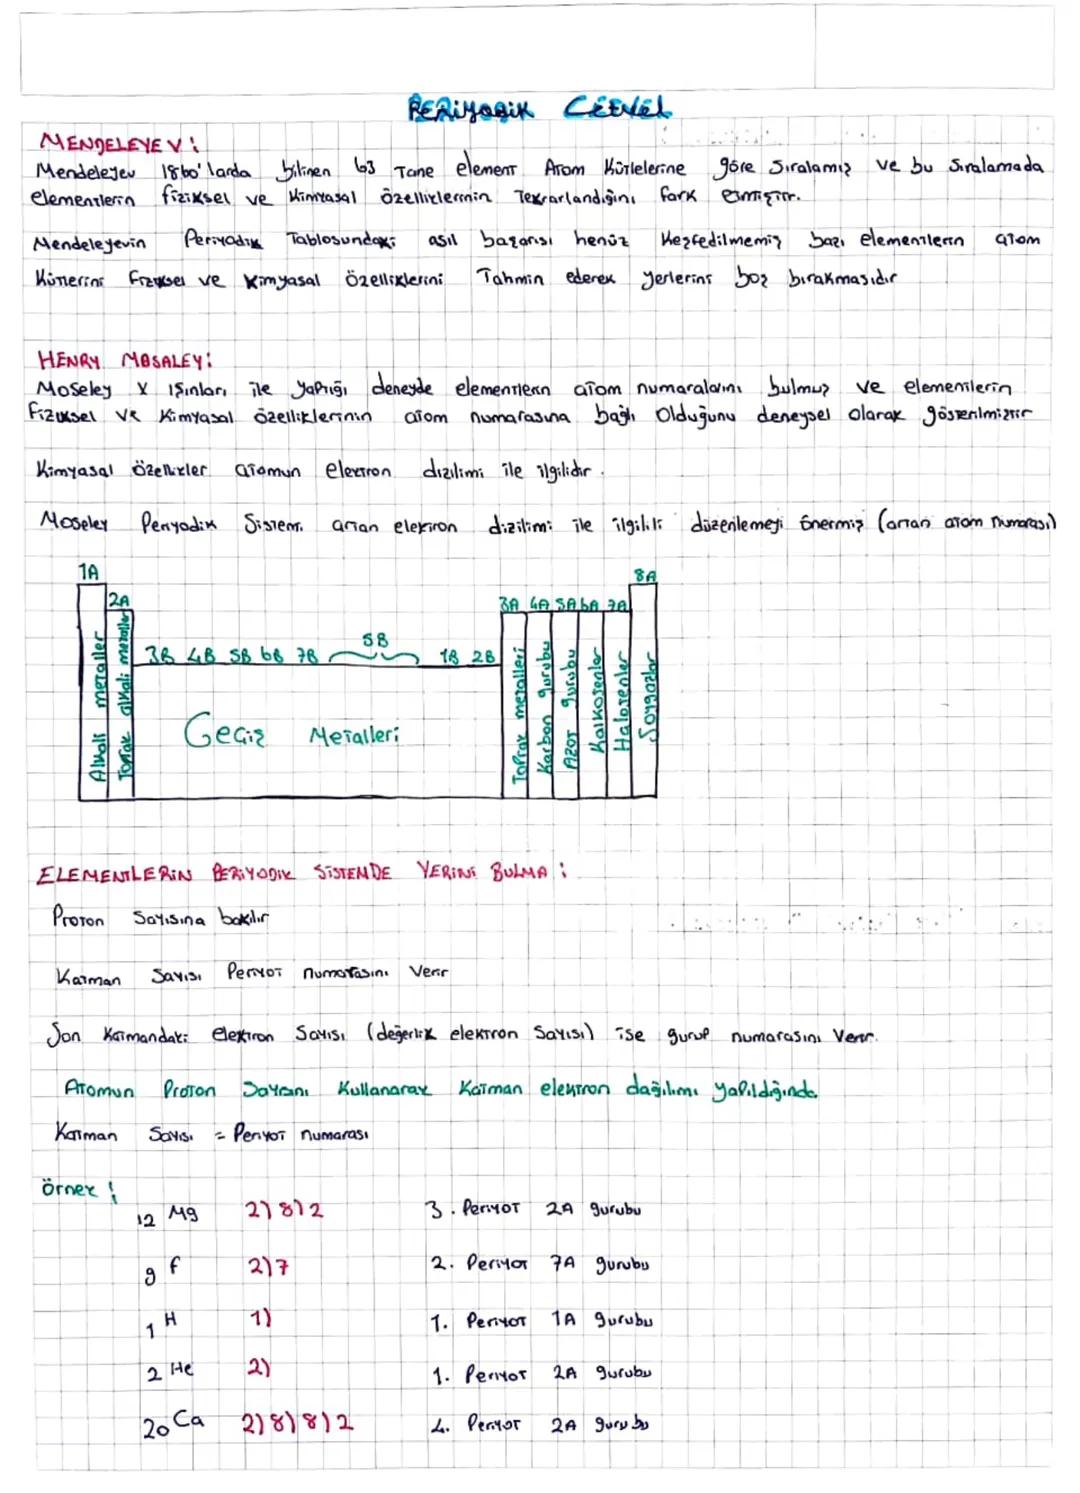 PERİYODİK CETVEL
MENDELEYEV:
Mendeleyev 1860'larda bilinen 63 Tane element Atom Kütlelerine göre Sıralamış ve bu Sıralamada
elementlerin fiziksel ve Kimyasal özelliklerinin Tekrarlandığını fark etmiştir.
Mendeleyevin Periyodik Tablosundaki asıl başarısı henüz Keşfedilmemiş bazı elementlerin atom
Kütlerini fiziksel ve Kimyasal özelliklerini Tahmin ederek yerlerini boş bırakmasıdır
HENRY MOSALEY:
Moseley X Işınları ile yaptığı deneyde elementlerin atom numaralarını bulmuş ve elementlerin
fiziksel ve Kimyasal özelliklerinin atom numarasına bağlı Olduğunu deneysel olarak gösterilmiştir
Kimyasal özellikler atomun elektron dizilimi ile ilgilidir.
Moseley Periyodik Sistemi artan elektron dizilimi ile ilgilili düzenlemeyi önermiş (artan atom numarası)
1A 8A
2A 3A 4A 5A 6A 7A
3B 4B 5B 6B 7B 5B 1B 2B
Alkali metaller
Toprak alkali metaller
Geçiş Metalleri
Toprak metalleri
Karbon gurubu
Azot gurubu
Kalkojenler
Halojenler
Soygazlar
ELEMENTLERİN PERİYODİK SİSTEMDE YERİNİ BULMA:
Proton Sayısına bakılır
Katman Sayısı Periyot numarasını Verir
Son Katmandaki elektron Sayısı (değerlik elektron Sayısı) ise gurup numarasını Verir.
Atomun Proton Sayısını Kullanarak Katman elektron dağılımı yapıldığında.
Katman Sayısı = Periyot numarası
Örnek:
12 Mg 2)8)2 3. Periyot 2A gurubu
9 f 2)7 2. Periyot 7A gurubu
1 H 1) 1. Periyot 1A gurubu
2 He 2) 1. Periyot 2A gurubu
20 Ca 2)8)8)2 4. Periyot 2A gurubu